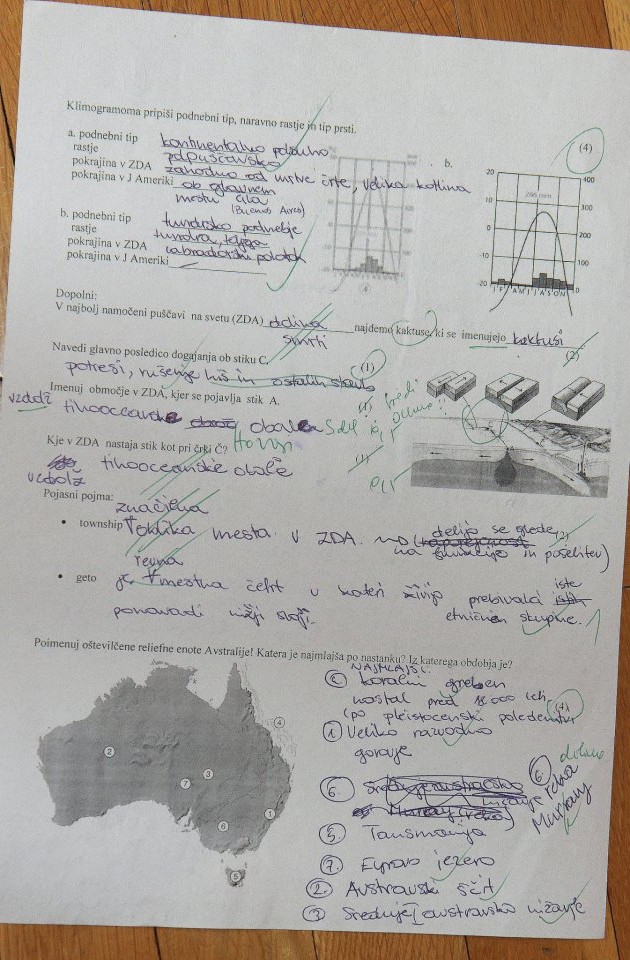 Klimogramoma pripiši podnebni tip, naravno rastje in tip prsti.
(4)
a. podnebni tip kontinentalno polsuho
rastje polpuščavsko
pokrajina v ZDA zahodno od mrtve črte, velika kotlina
pokrajina v J Ameriki ob glavnem
mestu čila
(Buenos Aires)
b. podnebni tip tundrsko podnebje
rastje tundra, tajga
pokrajina v ZDA labradorski polotok
pokrajina v J Ameriki
b.
20 400
10 300
0 200
-10 100
-20 0
Dopolni:
V najbolj namočeni puščavi na svetu (ZDA) dolina najdemo kaktuse, ki se imenujejo kaktusi
smrti
(2)
Navedi glavno posledico dogajanja ob stiku C.
(1)
potresi, rušenje hiš in ostalih stavb
Imenuj območje v ZDA, kjer se pojavlja stik A.
(1)
vzdolž tihooceanske obale
Kje v ZDA nastaja stik kot pri črki Č?
(1)
vzdolž tihooceanske obale
Pojasni pojma:
značilna
• township oblika mesta v ZDA delijo se glede
(2)
na funkcijo in poselitev)
revna
• geto je mestna četrt v kateri živijo prebivalci iste
ponavadi nižji sloji. etnične skupine.
1
Poimenuj oštevilčene reliefne enote Avstralije! Katera je najmlajša po nastanku? Iz katerega obdobja je?
NAJMLAJŠI:
koralni greben
nastal pred 18.000 leti
(4)
(po pleistocenski poledenitvi
1 Veliko razvodno
gorovje
6.
6.
reka
Murray
5. Tansmanija
7. Eyrovo jezero
2. Avstravski ščit
3 Srednje avstravsko nižavje
4
2
3
7
1
6
5